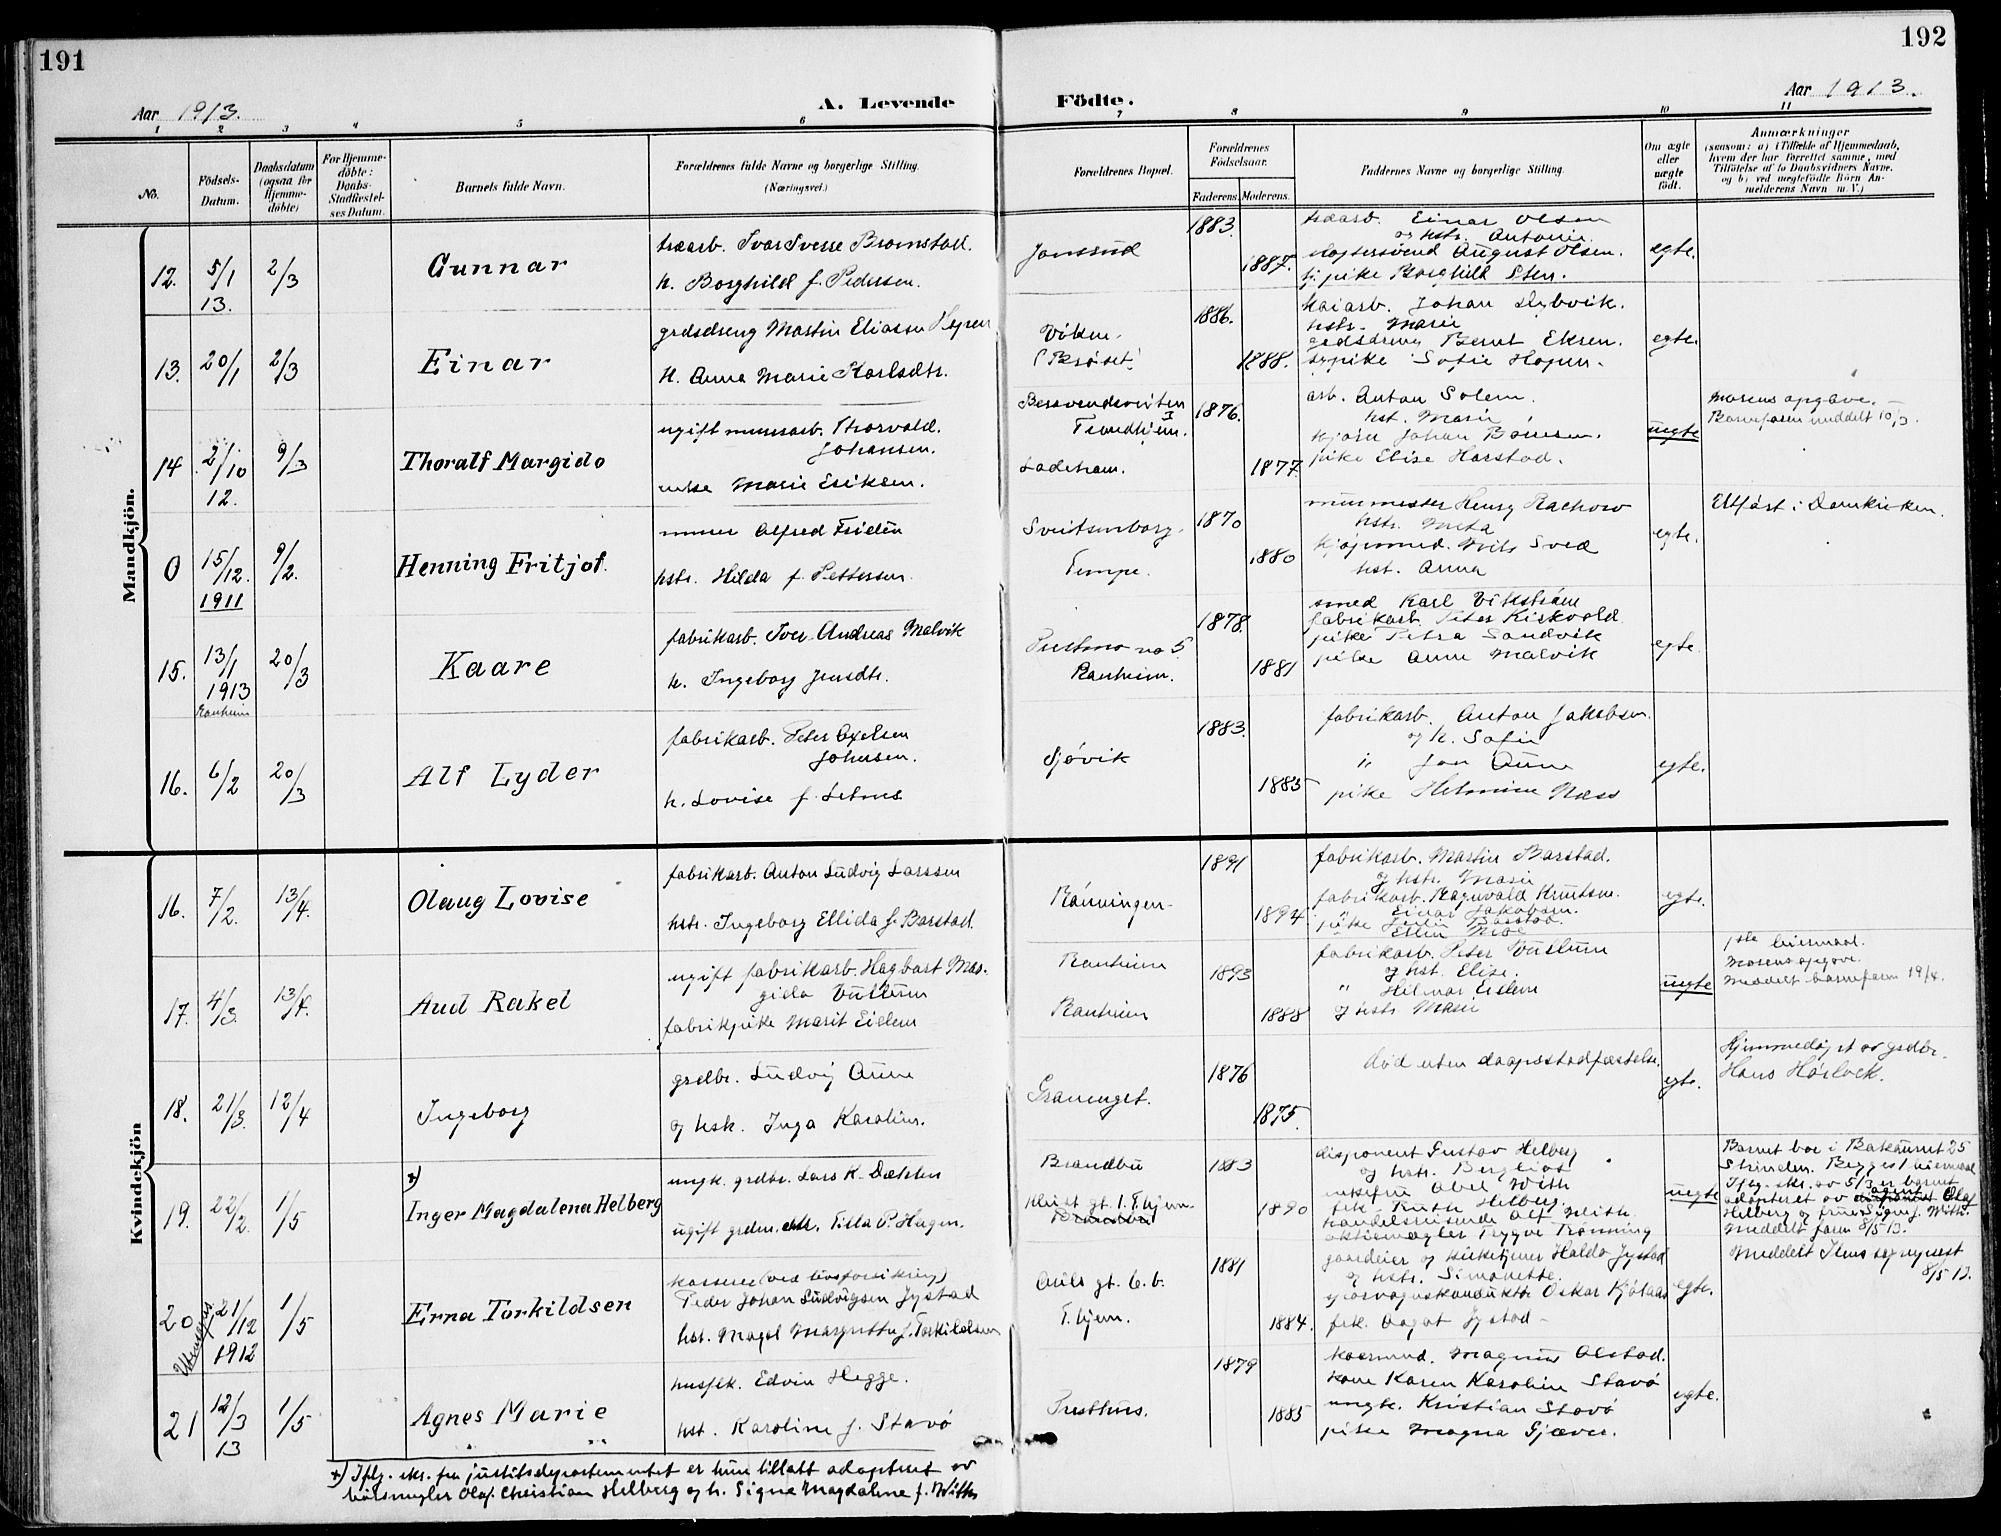 191
192
Aar 1913.
A. Levende
Födte.
Aar 1913.
1 2 3 4 5 6 7 8 9 10 11
No.
Födsels-Datum.
Daabsdatum (ogsaa for Hjemme-döbte)
For Hjemme-döbte: Daabs-Stadfæstel-ses Datum.
Barnets fulde Navn.
Forældrenes fulde Navne og borgerlige Stilling.
(Næringsvei.)
Forældrenes Bopæl.
Forældrenes Födselsaar.
Faderens. Moderens.
Faddernes Navne og borgerlige Stilling.
Om ægte eller uægte födt.
Anmærkninger
(saasom: a) i Tilfælde af Hjemmedaab,
hvem der har forrettet samme, med
Tilföielse af to Daabsvidners Navne,
og b) ved uægtefödte Börn An-
melderens Navn m. V.)
Mandkjön.
12. 5/1 13. 2/3
Gunnar
træarb. Ivar Sverre Bromstad.
h. Borghild f. Pedersen.
Jonssud
1883.
1887.
træarb. Einar Olsen
og hstr. Antonie.
August Olsen.
pike Borghild Sten.
egte.
13. 20/1 2/3
Einar
grdsdreng Martin Eliassen Hepsø
h. Anna Marie Karlsdtr.
Viken.
(Brøset)
1886.
1888.
kaiarb. Johan Dybvik.
hstr. Marie
grdsdreng Bernt Eksen.
sypike Sofie Hopen.
egte.
14 2/10 12. 9/3
Thoralf Margido
ugift murarb. Thorvald
Johansen.
enke Marie Eriksen.
Trondhjem.
Ladeham.
1876.
1877.
arb. Anton Solem.
hst. Marie
Johan
pike Elise Harstad.
uegte
Morens opgave.
Barnefaren meddelt 10/3.
0 15/12. 1911 9/2.
Henning Fritjof.
murer Alfred Fridén
hstr. Hilda f. Pettersen.
Tempe.
1870
1880
murmester Henry Rachow
hstr. Meta
kjøpmand. Nils Sved
hst. Anna
egte.
Utført i Domkirken.
15. 13/1 1913 Ranheim 20/3
Kaare
fabrikarb. Iver Andreas Malvik
h. Ingeborg Jensdtr.
Presthus no 5
Ranheim.
1878.
1881
smed Karl Vikstrøm
fabrikarb. Peter Kirkvold
pike Petra Sandvik
pike Anne Malvik
egte
16. 6/2 20/3
Alf Lyder
fabrikarb. Peter Axelsen
Johnsen.
h. Lovise f. Letnes
Sjøvik
1883.
1885
fabrikarb. Anton Jakobsen.
og h. Sofie
" Jon Aune
pike Helmine Næss
egte.
Kvindekjön
16. 7/2. 13/4.
Olaug Lovise
fabrikarb. Anton Ludvig Larssen
hstr. Ingeborg Ellida f. Barstad.
Rønningen
1891
1894.
fabrikarb. Martin Barstad.
og hstr. Marie
fabrikarb. Ragnvald Knutsen.
" Einar Jakobsen.
pike Barstad.
egte.
17. 4/3. 13/4.
Aud Rakel
ugift fabrikarb. Hagbart Mar-
gido Vullum
fabrikpike Marit Eidem
Ranheim
Ranheim
1893
1888
fabrikarb. Peter Vullum
og hst. Elise.
" Hilmar Eidem
og hstr Marie
uegte
1ste leiermaal.
Morens opgave.
Meddelt barnefaren 19/4.
18. 21/3. 12/4
Ingeborg
grdbr. Ludvig Aune
og hsk. Inga Karoline.
Granenget.
1876
1875.
død uten daapsstadfæstelse.
egte.
Hjemmedøpt av grdbr.
Hans Hørlock.
19. 22/2. 1/5
+)
Inger Magdalena Helberg
ungk. grdbr. Lars K. Dæhlen
ugift grdm. dtr. Tilla P. Hagen.
Brandbu
gt. 1. T.hjem.
Brandbu
1883
1890
disponent Gustav Helberg
og hstr. Bergliot
enkefru Abel With
frk. Ruth Helberg.
handelsreisende Alf With.
aktiemægler Trygve Trønning
uegte
Barnet bor i Bakaunet 25
Strinden. Begges 1 leiermaal
Iflg. skr. av 5/3 er barnet
adopteret av agent Olaf
Helberg og frue Signe f. With.
Meddelt faren 8/5 13.
20 21/12 1912 1/5
Erna Torkildsen
kasserer (ved livsforsikring)
Peder Johan Ludvigsen Jystad
hst. Magel Margrethe f. Torkildsen
gt. 6. b.
T.hjem.
1881
1884.
gaardeier og kirketjener Haldo Jystad
og hstr. Simonette.
sporvognskonduktør Oskar Kjølaas
frk. Aagot Jystad
egte.
8/5 13.
21 12/3 13 1/5
Agnes Marie
husflk. Edvin Hegge.
hst. Karoline f. Stavø
Presthus.
1879
1885
Magnus Alstad.
kone Karen Karoline Stavø
ungk. Kristian Stavø
pike Magna Gjæver.
egte.
+) Iflg. skr. fra justitsdepartementet er hun tillatt adoptert av
børsmegler Olaf Christian Helberg og h. Signe Magdalene f. With